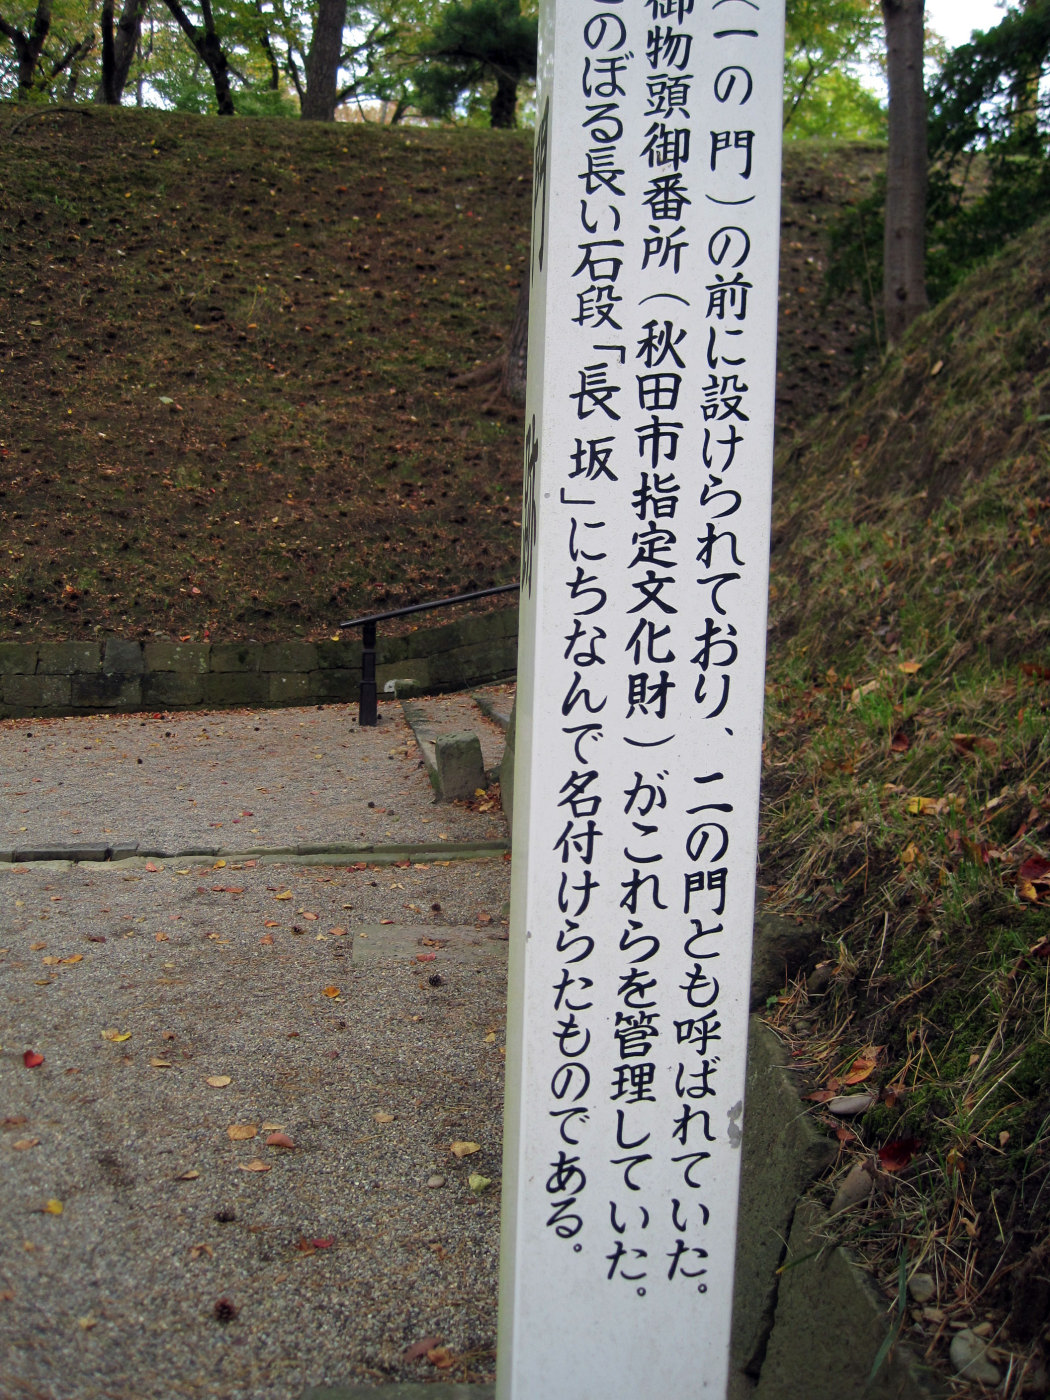 （一の門）の前に設けられており、二の門とも呼ばれていた。
御物頭御番所（秋田市指定文化財）がこれらを管理していた。
のぼる長い石段「長坂」にちなんで名付けらたものである。